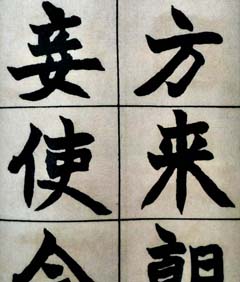 方来朝
妾使